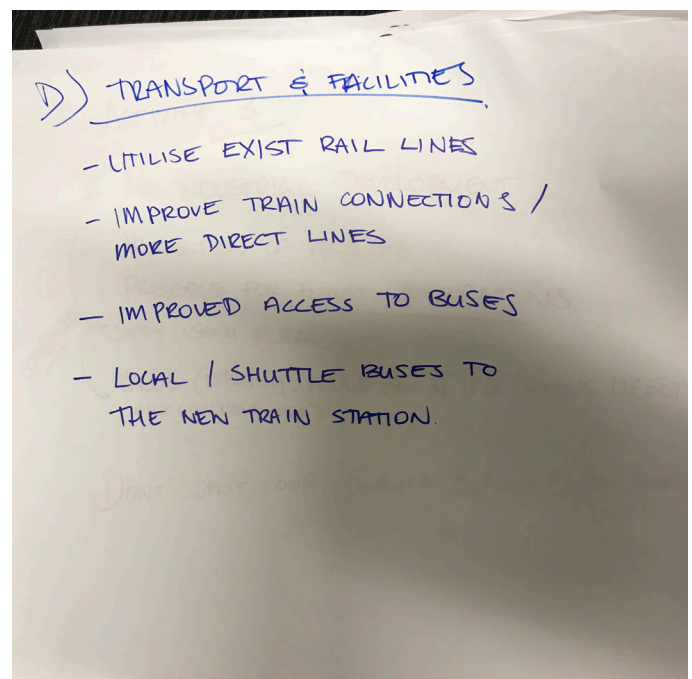 D) TRANSPORT & FACILITIES
- UTILISE EXIST RAIL LINES
- IMPROVE TRAIN CONNECTIONS /
MORE DIRECT LINES
- IMPROVED ACCESS TO BUSES
- LOCAL / SHUTTLE BUSES TO
THE NEW TRAIN STATION.